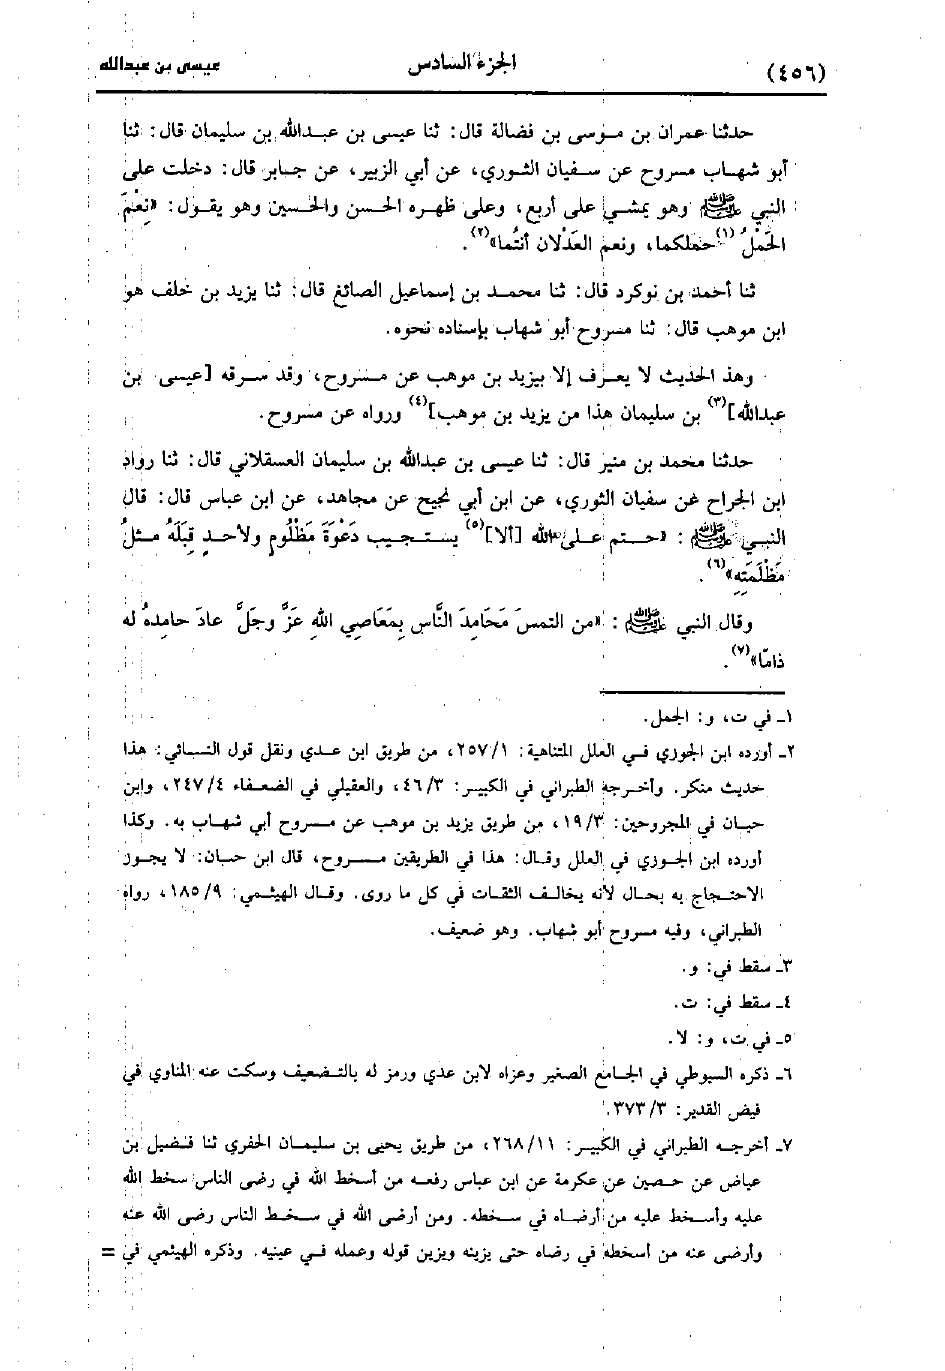 (٤٥٦) الجزء السادس عيسى بن عبدالله
حدثنا عمران بن موسى بن فضالة قال: ثنا عيسى بن عبدالله بن سليمان قال: ثنا
أبو شهاب مسروح عن سفيان الثوري، عن أبي الزبير، عن جابر قال: دخلت على
النبي ﷺ وهو يمشي على أربع، وعلى ظهره الحسن والحسين وهو يقول: «نِعْمَ
الحَمْلُ(١) حملكما، ونعم العَدْلان أنتُما»(٢).
ثنا أحمد بن نوكرد قال: ثنا محمد بن إسماعيل الصائغ قال: ثنا يزيد بن خلف هو
ابن موهب قال: ثنا مسروح أبو شهاب بإسناده نحوه.
وهذ الحديث لا يعرف إلا بيزيد بن موهب عن مسروح، وقد سرقه [عيسى بن
عبدالله](٣) بن سليمان هذا من يزيد بن موهب](٤) ورواه عن مسروح.
حدثنا محمد بن منير قال: ثنا عيسى بن عبدالله بن سليمان العسقلاني قال: ثنا رواد
ابن الجراح عن سفيان الثوري، عن ابن أبي نجيح عن مجاهد، عن ابن عباس قال: قال
النبي ﷺ: «حتم على الله [ألا](٥) يستجيب دَعْوَةَ مَظْلُومٍ ولأحدٍ قِبَلَهُ مثلُ
مَظْلَمَتِه»(٦).
وقال النبي ﷺ: «من التمسَ مَحَامِدَ النَّاس بِمَعَاصِي اللهِ عَزَّ وجَلَّ عادَ حامِدهُ له
ذامّا»(٧).
١ـ في ت، و: الجمل.
٢ـ أورده ابن الجوزي في العلل المتناهية: ٢٥٧/١، من طريق ابن عدي ونقل قول النسائي: هذا
حديث منكر. وأخرجه الطبراني في الكبير: ٤٦/٣، والعقيلي في الضعفاء ٢٤٧/٤، وابن
حبان في المجروحين: ١٩/٣، من طريق يزيد بن موهب عن مسروح أبي شهاب به. وكذا
أورده ابن الجوزي في العلل وقال: هذا في الطريقين مسروح، قال ابن حبان: لا يجوز
الاحتجاج به بحال لأنه يخالف الثقات في كل ما روى. وقال الهيثمي: ١٨٥/٩، رواه
الطبراني، وفيه مسروح أبو شهاب. وهو ضعيف.
٣ـ سقط في: و.
٤ـ سقط في: ت.
٥ـ في ت، و: لا.
٦ـ ذكره السيوطي في الجامع الصغير وعزاه لابن عدي ورمز له بالتضعيف وسكت عنه المناوي في
فيض القدير: ٣٧٣/٣.
٧ـ أخرجه الطبراني في الكبير: ٢٦٨/١١، من طريق يحيى بن سليمان الحفري ثنا فضيل بن
عياض عن حصين عن عكرمة عن ابن عباس رفعه من أسخط الله في رضى الناس سخط الله
عليه وأسخط عليه من أرضاه في سخطه. ومن أرضى الله في سخط الناس رضى الله عنه
وأرضى عنه من أسخطه في رضاه حتى يزينه ويزين قوله وعمله في عينيه. وذكره الهيثمي في =